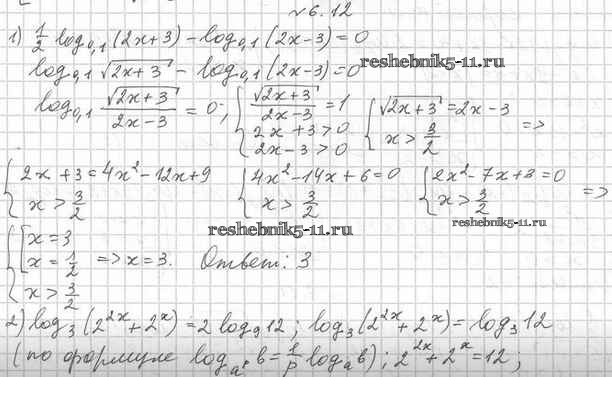 №6.12
1) 1/2 log₀,₁(2x+3) − log₀,₁(2x−3) = 0
log₀,₁ √(2x+3) − log₀,₁(2x−3) = 0
reshebnik5-11.ru
log₀,₁ √(2x+3)/(2x−3) = 0; { √(2x+3)/(2x−3) = 1; 2x+3>0; 2x−3>0 { √(2x+3) = 2x−3; x > 3/2 =>
{ 2x+3 = 4x²−12x+9; x > 3/2 { 4x²−14x+6=0; x > 3/2 { 2x²−7x+3=0; x > 3/2 =>
reshebnik5-11.ru
reshebnik5-11.ru
{ [ x=3; x=1/2; x > 3/2 => x=3. Ответ: 3
2) log₃(2²ˣ+2ˣ) = 2 log₉12; log₃(2²ˣ+2ˣ) = log₃12
(по формуле log_aᵖ b = 1/p log_a b); 2²ˣ+2ˣ=12;